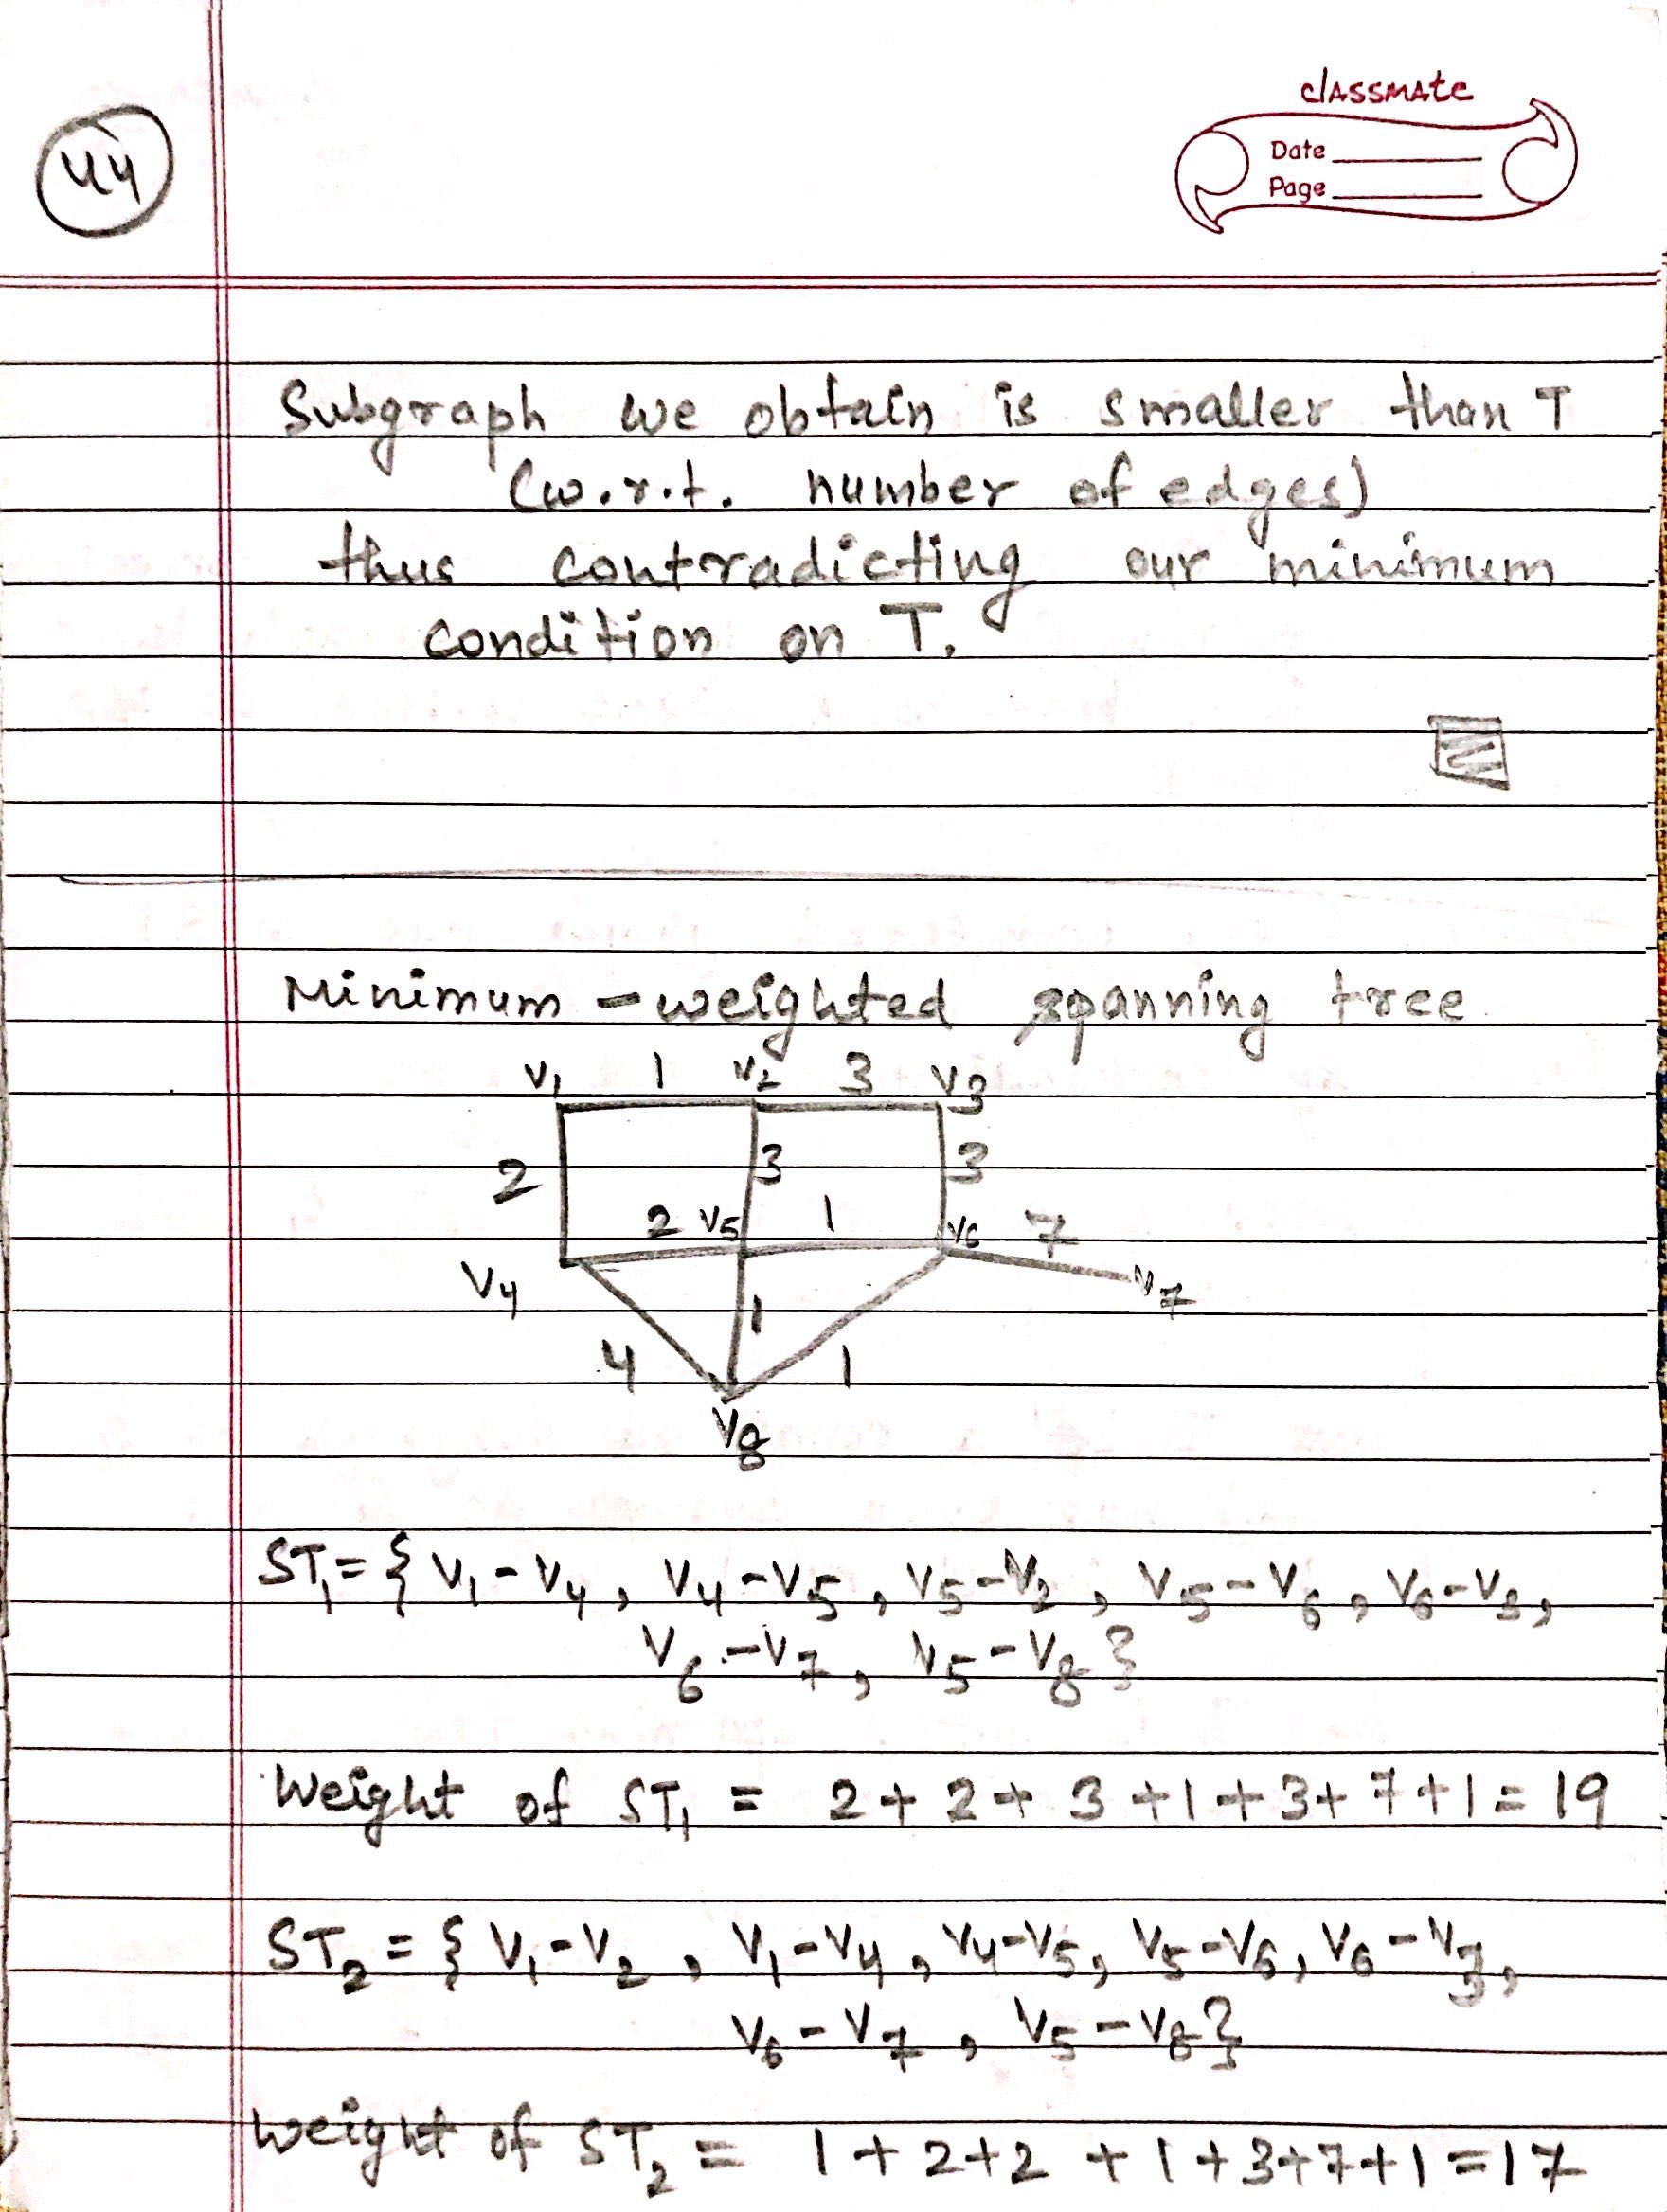 44
classmate
Date
Page
Subgraph we obtain is smaller than T
(w.r.t. number of edges)
thus contradicting our minimum
condition on T.
Minimum - weighted spanning tree
V1 1 V2 3 V3
2 3 3
2 V5 1 V6 7
V4 V7
1
4 1
V8
ST1 = { V1-V4, V4-V5, V5-V2, V5-V6, V6-V3,
V6-V7, V5-V8 }
Weight of ST1 = 2+2+3+1+3+7+1=19
ST2 = { V1-V2, V1-V4, V4-V5, V5-V6, V6-V3,
V6-V7, V5-V8 }
Weight of ST2 = 1+2+2+1+3+7+1=17